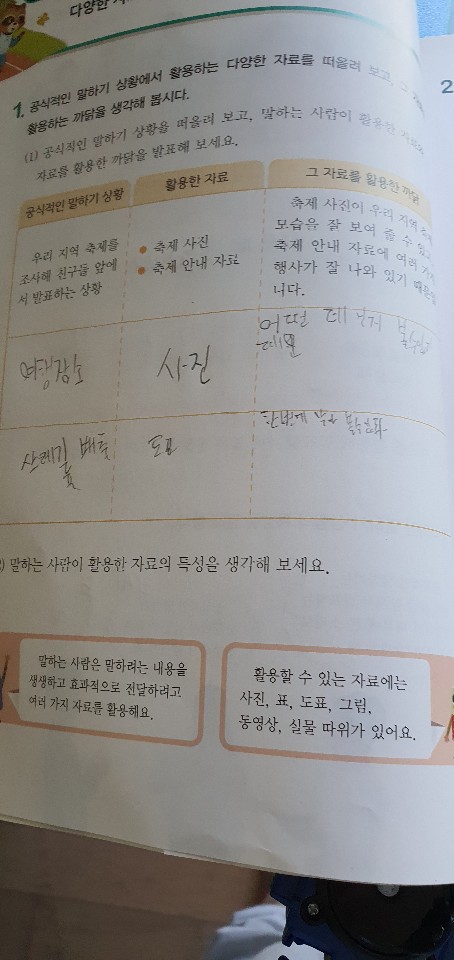 다양한
2
1. 공식적인 말하기 상황에서 활용하는 다양한 자료를 떠올려 보고, 그
활용하는 까닭을 생각해 봅시다.
(1) 공식적인 말하기 상황을 떠올려 보고, 말하는 사람이 활용한
자료를 활용한 까닭을 발표해 보세요.
공식적인 말하기 상황 활용한 자료 그 자료를 활용한 까닭
우리 지역 축제를
조사해 친구들 앞에
서 발표하는 상황
• 축제 사진
• 축제 안내 자료
축제 사진이 우리 지역
모습을 잘 보여 줄 수 있고
축제 안내 자료에 여러
행사가 잘 나와 있기
니다.
여행장소 사진 어떤
도표 한번에
말하는 사람이 활용한 자료의 특성을 생각해 보세요.
말하는 사람은 말하려는 내용을
생생하고 효과적으로 전달하려고
여러 가지 자료를 활용해요.
활용할 수 있는 자료에는
사진, 표, 도표, 그림,
동영상, 실물 따위가 있어요.